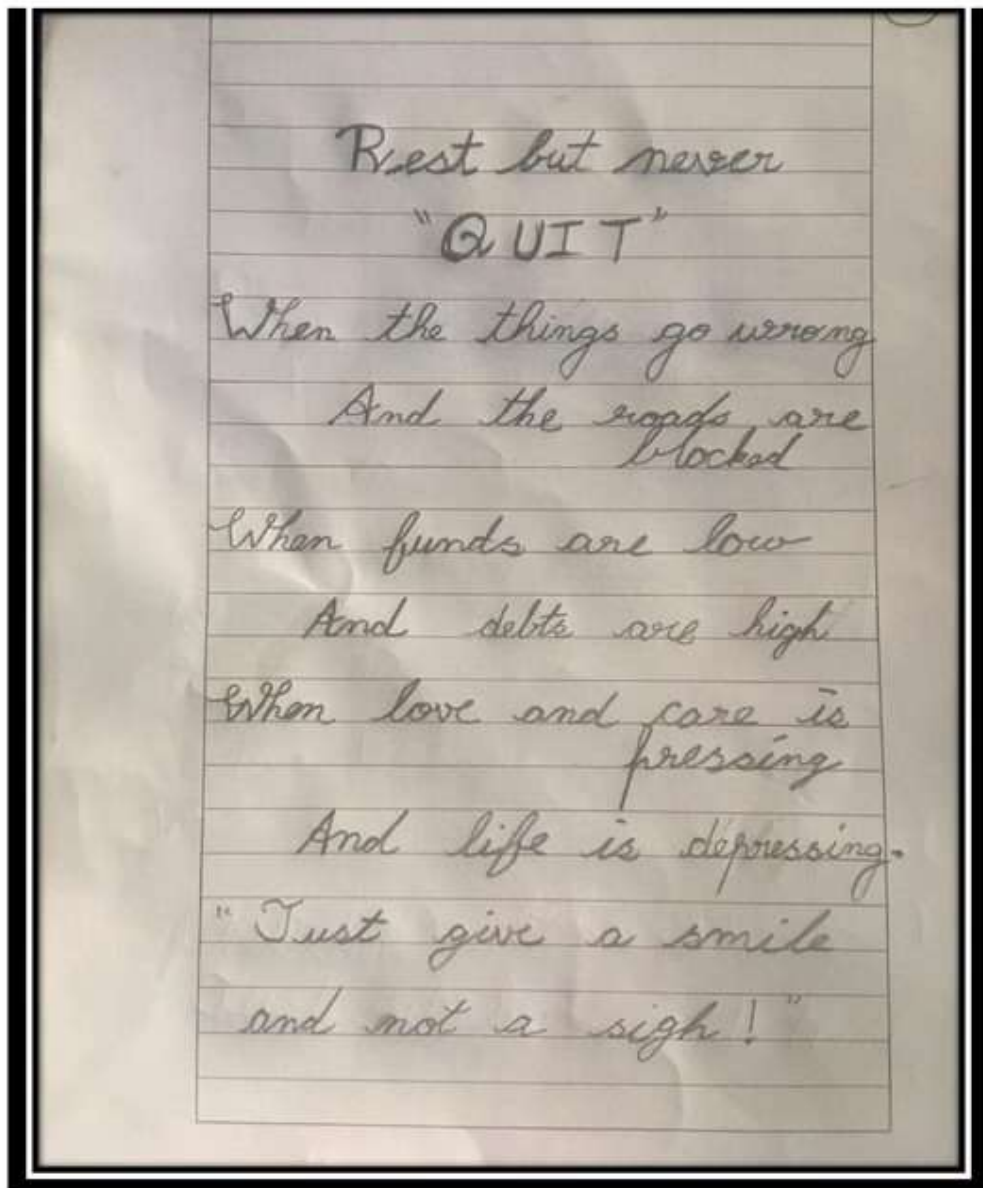 Rest but never
"QUIT"
When the things go wrong
And the roads are
blocked
When funds are low
And debts are high
When love and care is
pressing
And life is depressing.
"Just give a smile
and not a sigh!"